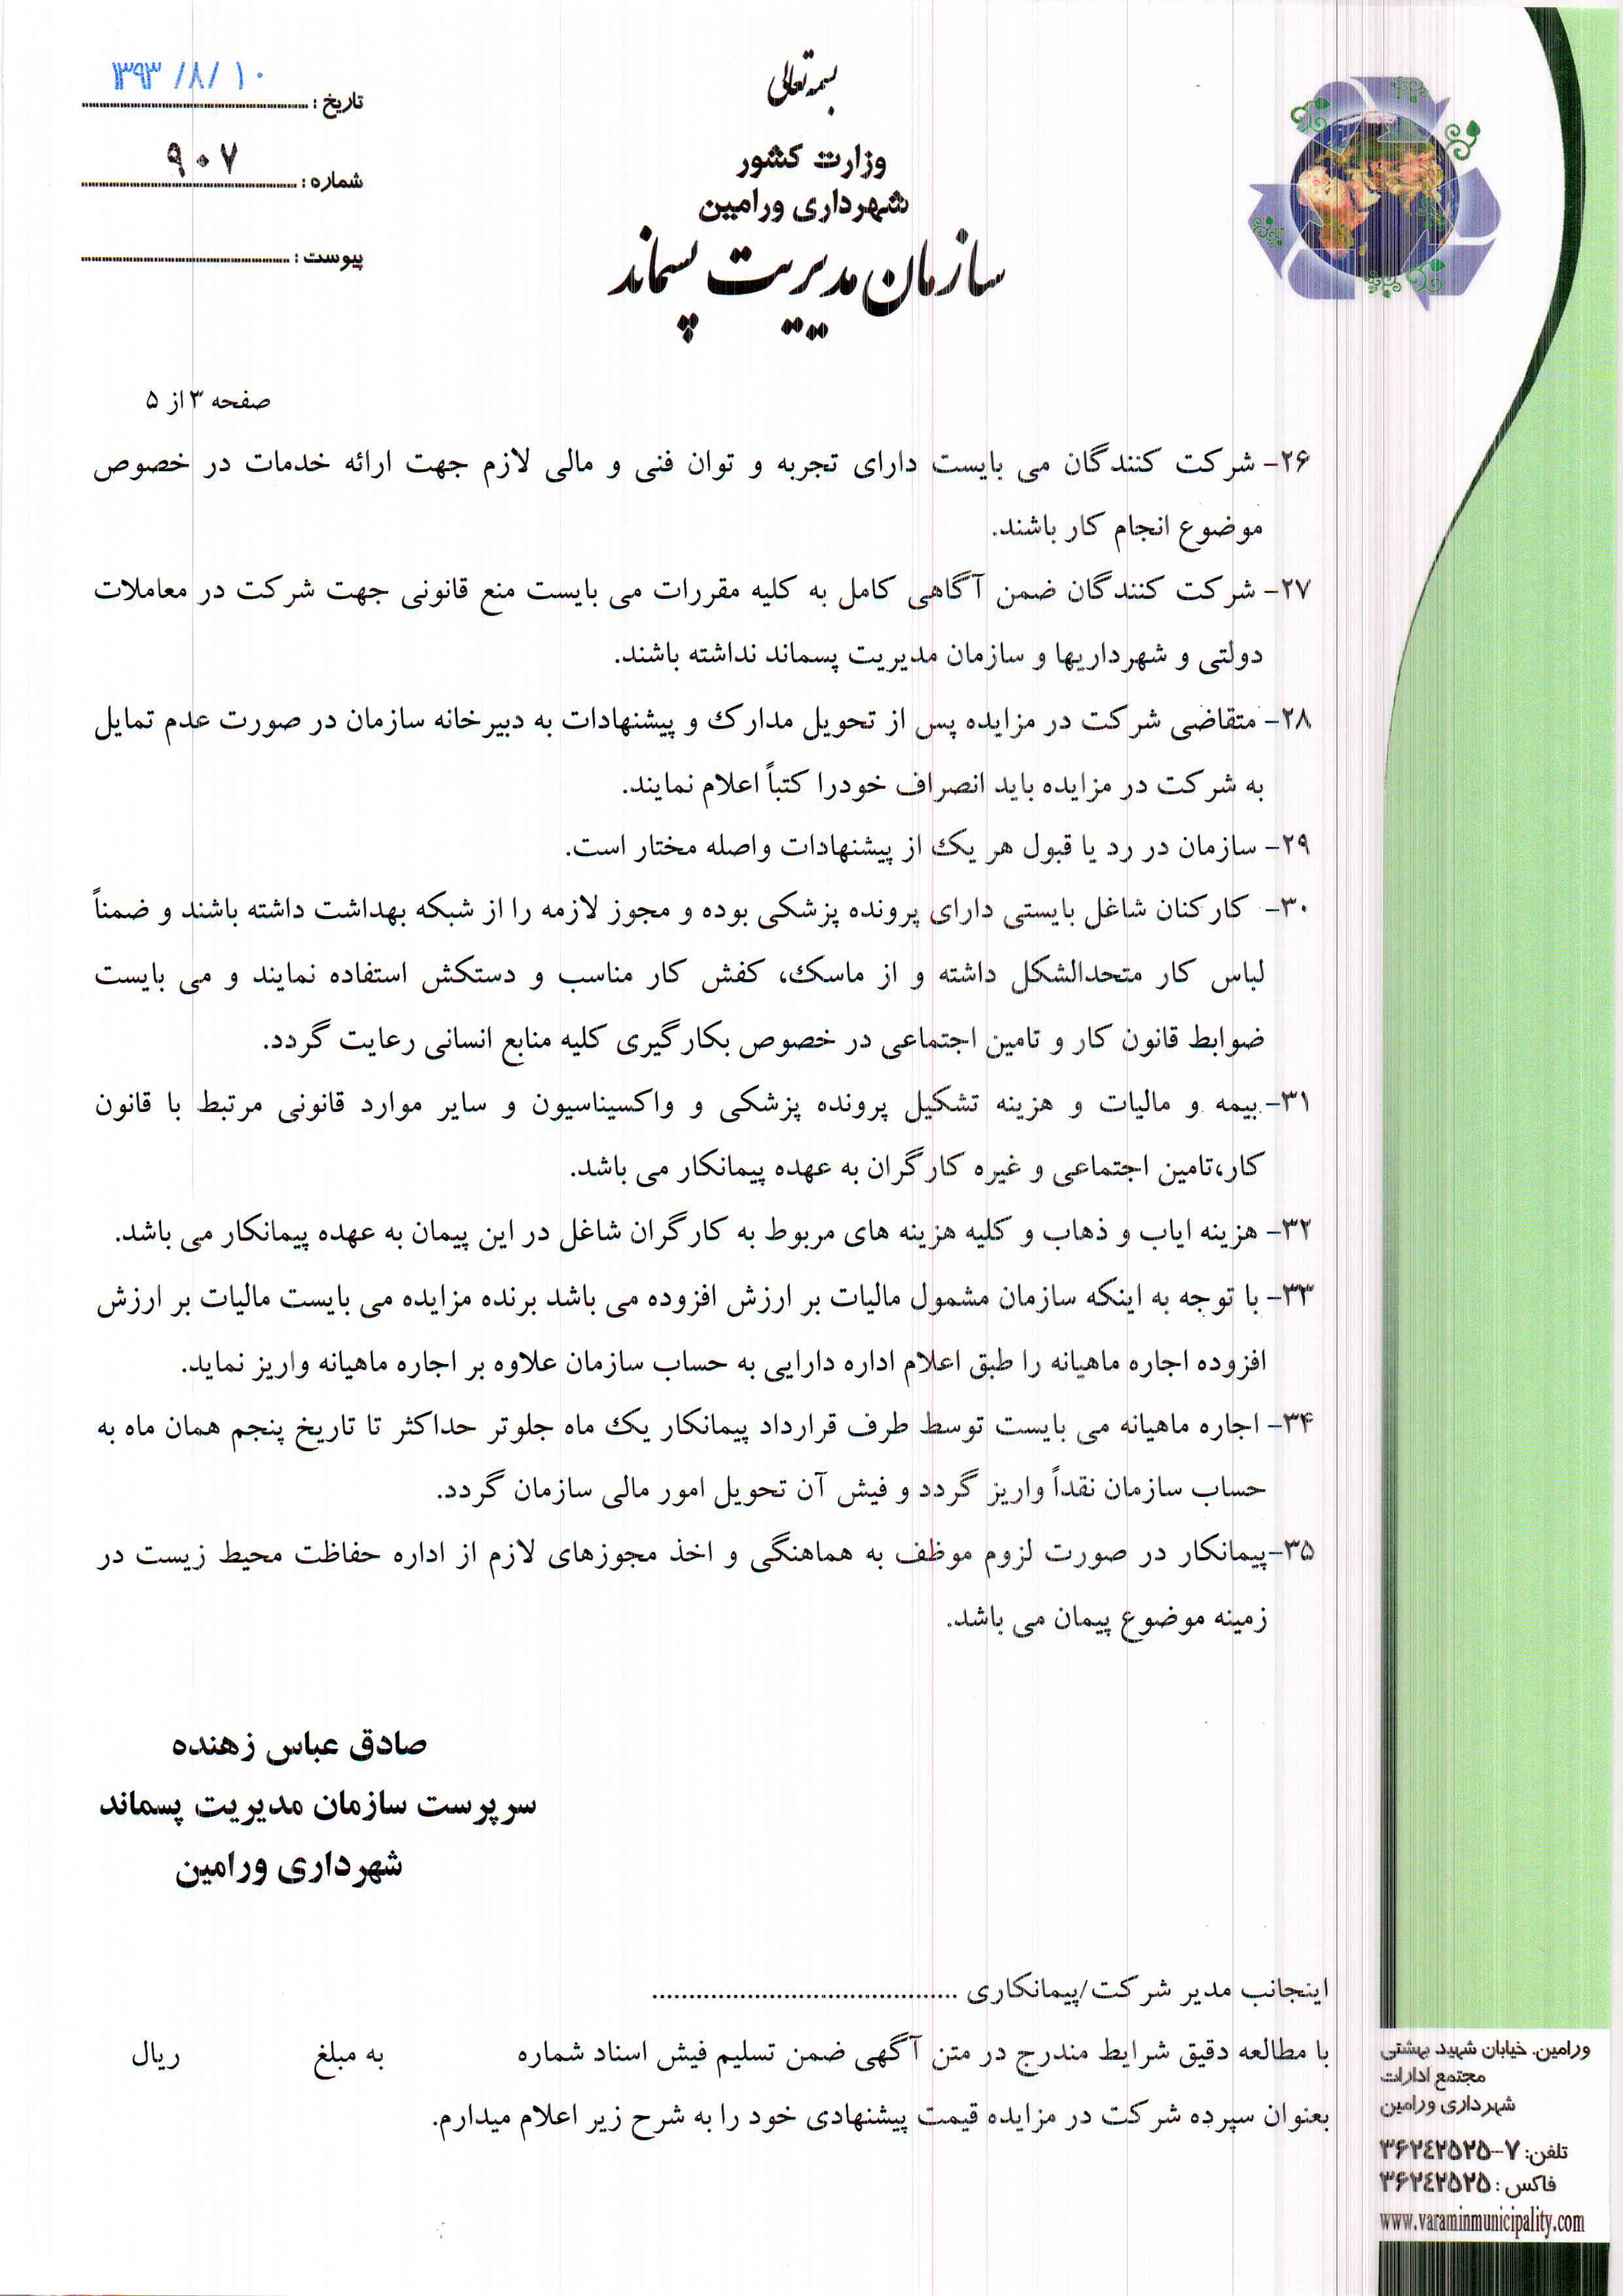 بسمه تعالی
وزارت کشور
شهرداری ورامین
سازمان مدیریت پسماند
تاریخ : ۱۳۹۳/۸/۱۰
شماره : ۹۰۷
پیوست :
صفحه ۳ از ۵
۲۶- شرکت کنندگان می بایست دارای تجربه و توان فنی و مالی لازم جهت ارائه خدمات در خصوص
موضوع انجام کار باشند.
۲۷- شرکت کنندگان ضمن آگاهی کامل به کلیه مقررات می بایست منع قانونی جهت شرکت در معاملات
دولتی و شهرداریها و سازمان مدیریت پسماند نداشته باشند.
۲۸- متقاضی شرکت در مزایده پس از تحویل مدارک و پیشنهادات به دبیرخانه سازمان در صورت عدم تمایل
به شرکت در مزایده باید انصراف خودرا کتباً اعلام نمایند.
۲۹- سازمان در رد یا قبول هر یک از پیشنهادات واصله مختار است.
۳۰- کارکنان شاغل بایستی دارای پرونده پزشکی بوده و مجوز لازمه را از شبکه بهداشت داشته باشند و ضمناً
لباس کار متحدالشکل داشته و از ماسک، کفش کار مناسب و دستکش استفاده نمایند و می بایست
ضوابط قانون کار و تامین اجتماعی در خصوص بکارگیری کلیه منابع انسانی رعایت گردد.
۳۱- بیمه و مالیات و هزینه تشکیل پرونده پزشکی و واکسیناسیون و سایر موارد قانونی مرتبط با قانون
کار،تامین اجتماعی و غیره کارگران به عهده پیمانکار می باشد.
۳۲- هزینه ایاب و ذهاب و کلیه هزینه های مربوط به کارگران شاغل در این پیمان به عهده پیمانکار می باشد.
۳۳- با توجه به اینکه سازمان مشمول مالیات بر ارزش افزوده می باشد برنده مزایده می بایست مالیات بر ارزش
افزوده اجاره ماهیانه را طبق اعلام اداره دارایی به حساب سازمان علاوه بر اجاره ماهیانه واریز نماید.
۳۴- اجاره ماهیانه می بایست توسط طرف قرارداد پیمانکار یک ماه جلوتر حداکثر تا تاریخ پنجم همان ماه به
حساب سازمان نقداً واریز گردد و فیش آن تحویل امور مالی سازمان گردد.
۳۵-پیمانکار در صورت لزوم موظف به هماهنگی و اخذ مجوزهای لازم از اداره حفاظت محیط زیست در
زمینه موضوع پیمان می باشد.
صادق عباس زهنده
سرپرست سازمان مدیریت پسماند
شهرداری ورامین
اینجانب مدیر شرکت/پیمانکاری ..........................................
با مطالعه دقیق شرایط مندرج در متن آگهی ضمن تسلیم فیش اسناد شماره به مبلغ ریال
بعنوان سپرده شرکت در مزایده قیمت پیشنهادی خود را به شرح زیر اعلام میدارم.
ورامین. خیابان شهید بهشتی
مجتمع ادارات
شهرداری ورامین
تلفن: ۷-۳۶۲۴۲۵۲۵
فاکس : ۳۶۲۴۲۵۲۵
www.varaminmunicipality.com